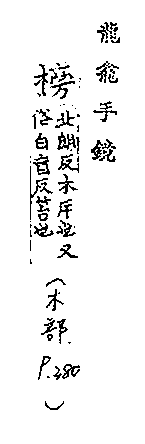 龍龕手鏡
榜
北朗反木片也又
俗白盲反笞也
(木部
P.380)